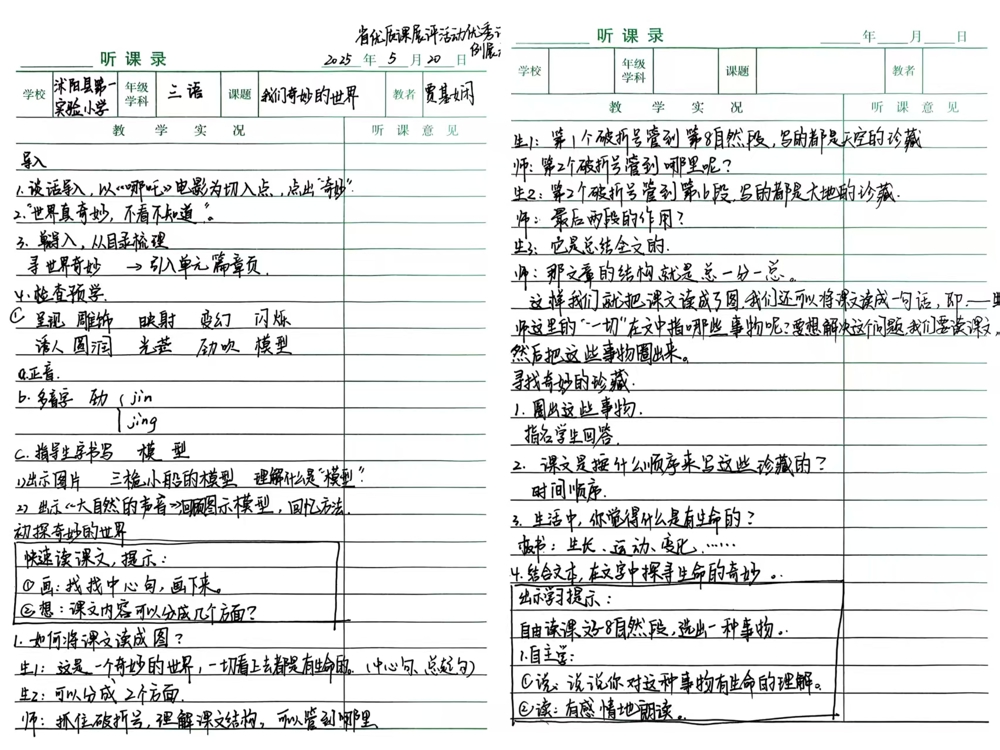 省优质课展评活动优秀课
例展示
听课录
2025年5月20日
学校 沭阳县第一实验小学 年级学科 三语 课题 我们奇妙的世界 教者 贾基娴
教学实况 听课意见
导入
1.谈话导入,以《哪吒》电影为切入点,点出“奇妙”.
2.“世界真奇妙,不看不知道”。
3.单导入,从目录梳理
寻世界奇妙 →引入单元篇章页.
4.检查预学.
① 呈现 雕饰 映射 变幻 闪烁
诱人 圆润 光芒 劲吹 模型
a.正音.
b.多音字 劲 { jìn
jìng
C.指导生字书写 模 型
1)出示图片 三桅小船的模型 理解什么是“模型”.
2) 出示《大自然的声音》回顾图示模型,回忆方法.
初探奇妙的世界
快速读课文,提示:
①画:找找中心句,画下来。
②想:课文内容可以分成几个方面?
1.如何将课文读成图?
生1:这是一个奇妙的世界,一切看上去都是有生命的。(中心句、总起句)
生2:可以分成2个方面.
师:抓住破折号,理解课文结构,可以管到哪里
听课录
年 月 日
学校 年级学科 课题 教者
教学实况 听课意见
生1:第1个破折号管到第8自然段,写的都是天空的珍藏
师:第2个破折号管到哪里呢?
生2:第2个破折号管到第16段,写的都是大地的珍藏.
师:最后两段的作用?
生3:它是总结全文的.
师:那文章的结构就是总—分—总。
这样我们就把课文读成了图,我们还可以将课文读成一句话,即——
师这里的“一切”在文中指哪些事物呢?要想解决这个问题,我们要读课文,
然后把这些事物圈出来。
寻找奇妙的珍藏.
1.圈出这些事物.
指名学生回答.
2.课文是按什么顺序来写这些珍藏的?
时间顺序.
3.生活中,你觉得什么是有生命的?
板书:生长、运动、变化、……
4.结合文本,在文字中探寻生命的奇妙。
出示学习提示:
自由读课文3-8自然段,选出一种事物。
1.自主学:
①说:说说你对这种事物有生命的理解。
②读:有感情地朗读。